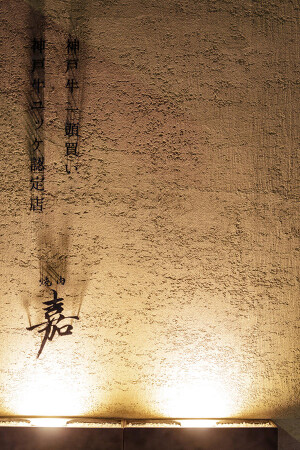 神戸牛一頭買い
神戸牛ユッケ認定店
焼肉
嘉